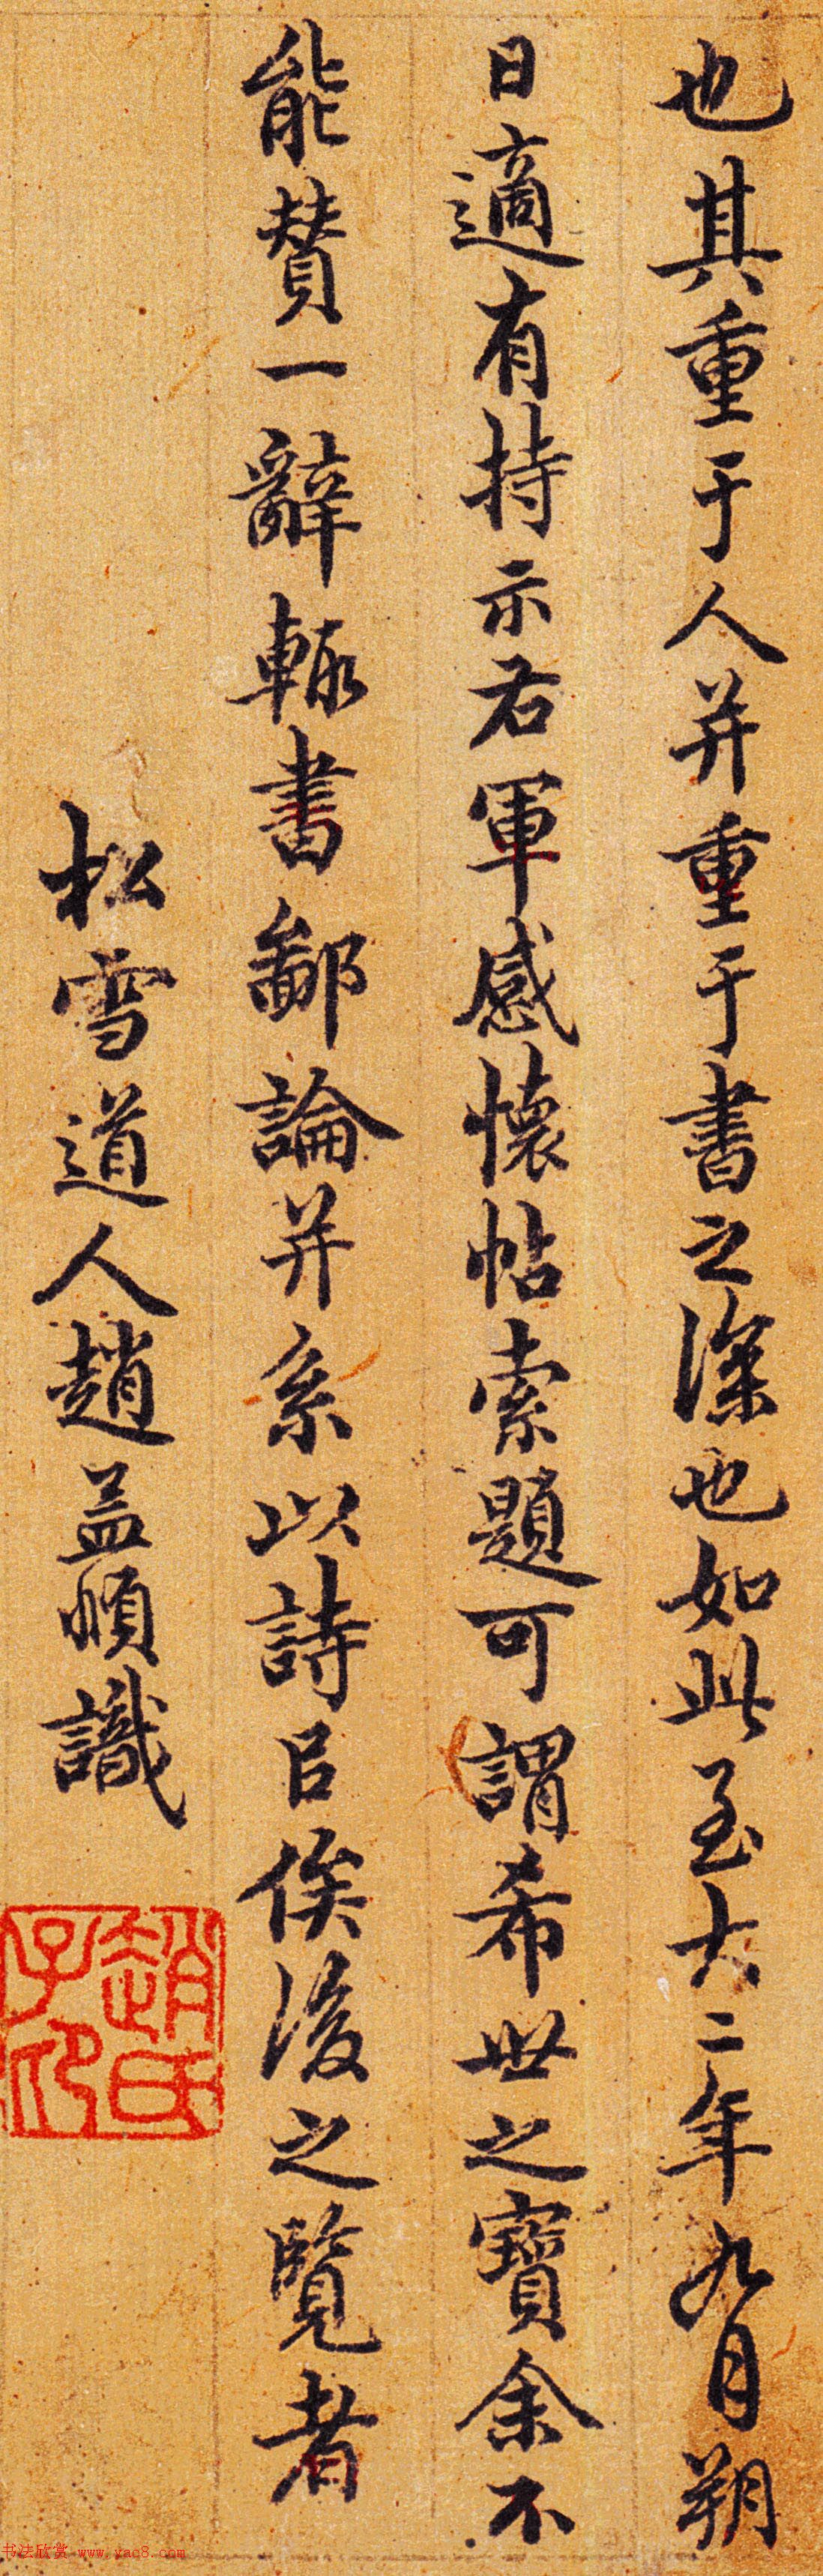 也其重于人并重于書之深也如此至大二年九月朔
日適有持示右軍感懷帖索題可謂希世之寶余不
能賛一辭輙書鄙論并系以詩㠯俟後之覧者
松雪道人趙孟頫識
趙氏子印
书法欣赏 www.yac8.com